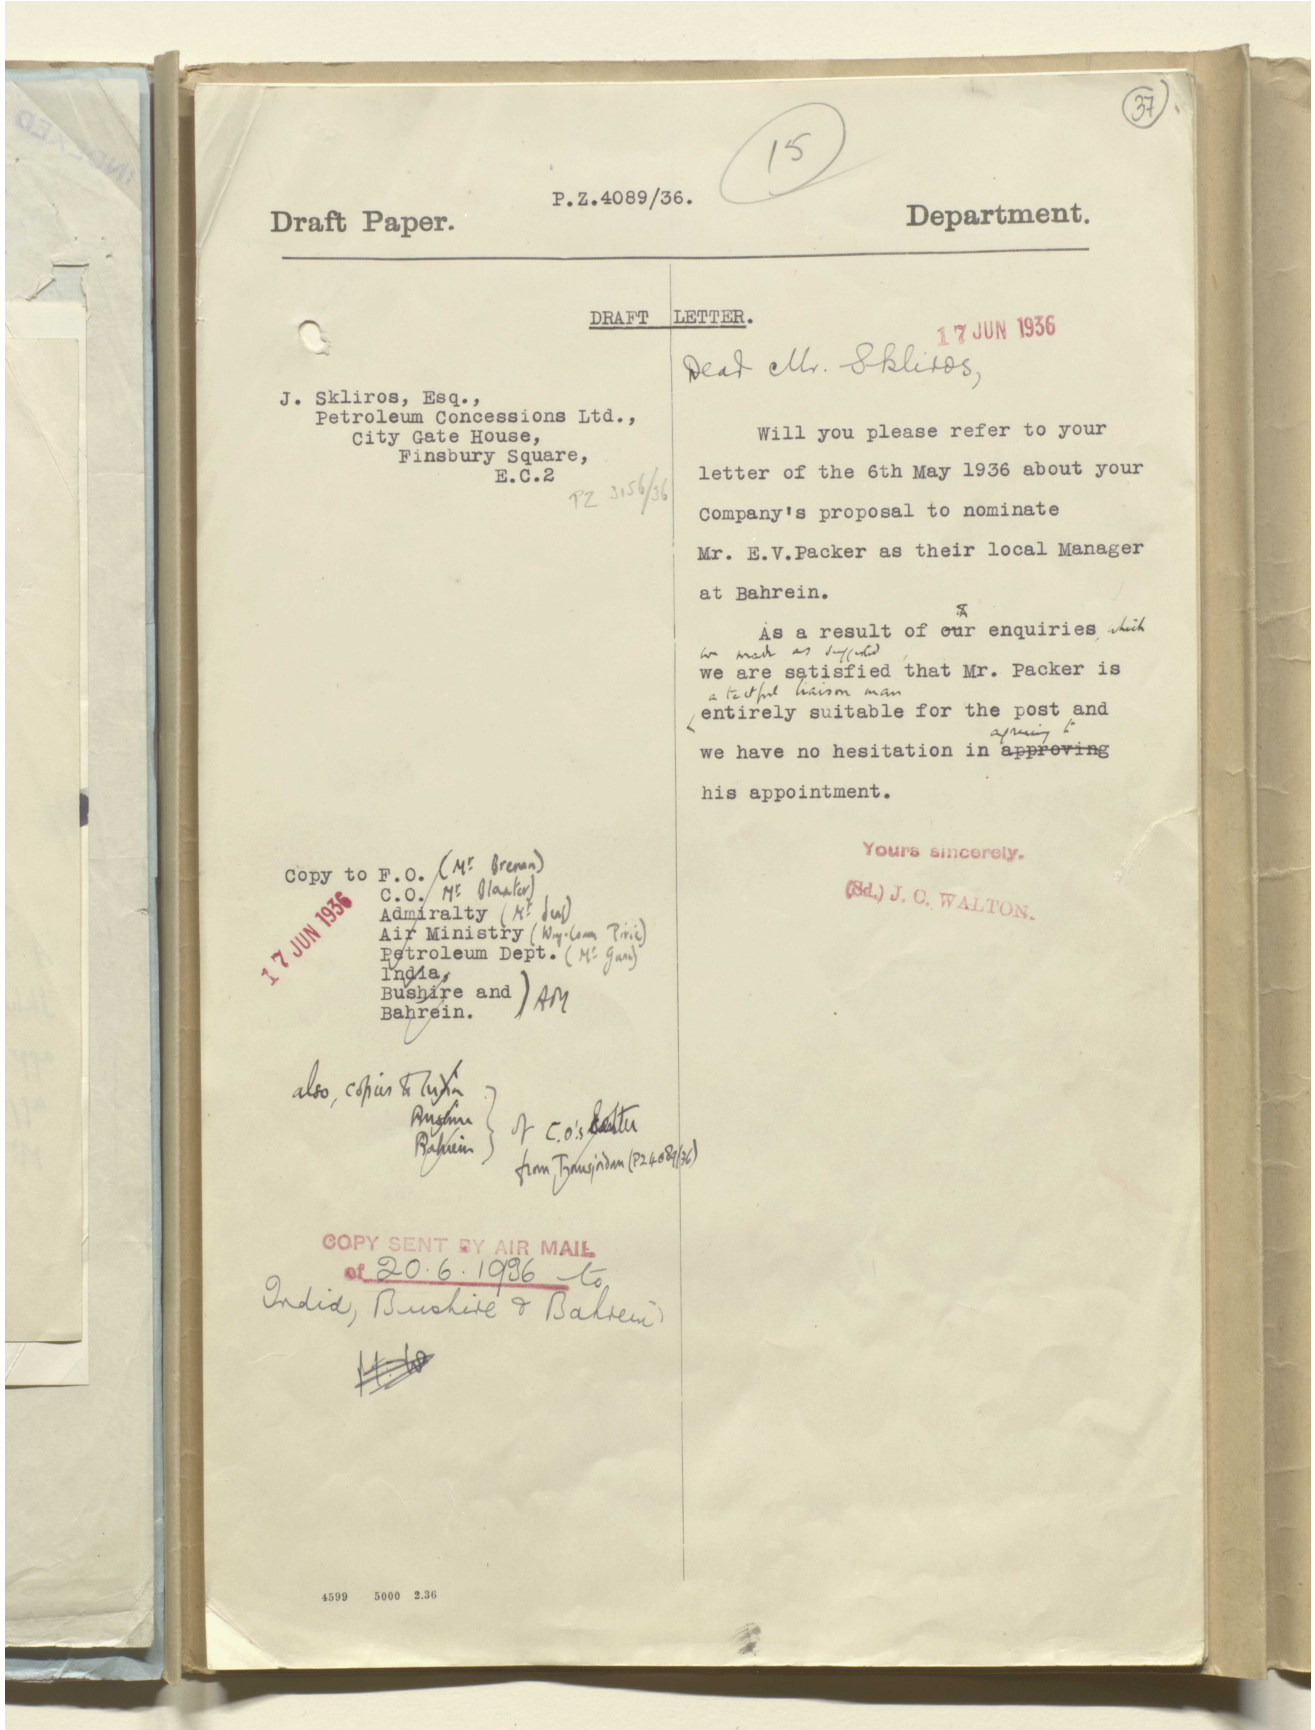 37
15
P.Z.4089/36.
Draft Paper.
Department.
DRAFT LETTER.
17 JUN 1936
Dear Mr. Skliros,
J. Skliros, Esq.,
Petroleum Concessions Ltd.,
City Gate House,
Finsbury Square,
E.C.2
PZ 3156/36
Will you please refer to your
letter of the 6th May 1936 about your
Company's proposal to nominate
Mr. E.V.Packer as their local Manager
at Bahrein.
As a result of our enquiries, which
we made as suggested,
we are satisfied that Mr. Packer is
a tactful liaison man
entirely suitable for the post and
agreeing to
we have no hesitation in approving
his appointment.
Yours sincerely.
(Sd.) J. C. WALTON.
Copy to F.O. (Mr Brenan)
C.O. Mr Blaxter)
Admiralty (Mr Seal)
Air Ministry (Wing-Comm Pirie)
Petroleum Dept. (Mr
India,
Bushire and
Bahrein.
17 JUN 1936
also, copies to India
Bushire
Bahrein
of C.O's letter
from Transjordan (PZ4089/36)
COPY SENT BY AIR MAIL
of 20.6.1936 to
India, Bushire & Bahrein
4599 5000 2.36
INDEXED